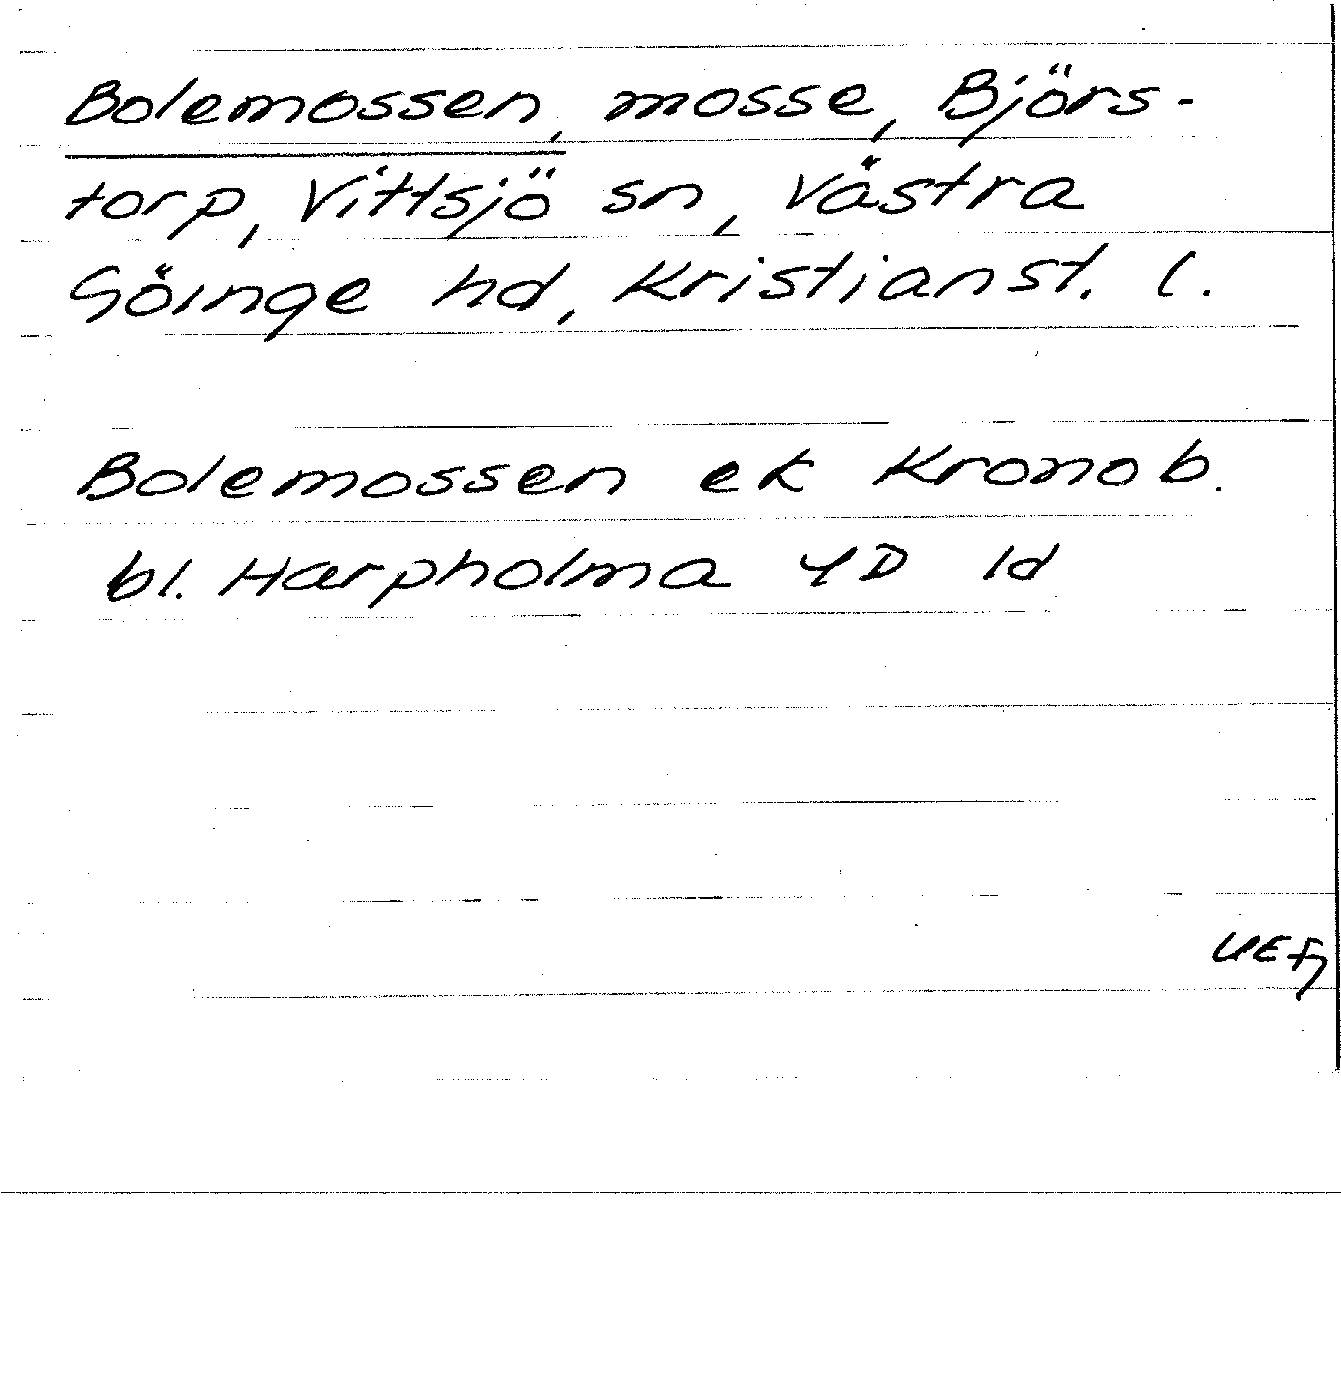 Bolemossen, mosse, Björs-
torp, Vittsjö sn, Västra
Göinge hd, Kristianst. l.
Bolemossen ek Kronob.
bl. Harpholma 4D 1d